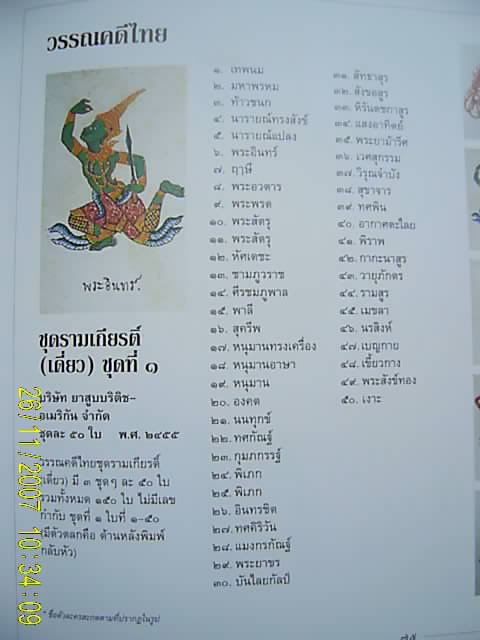 วรรณคดีไทย
พระอินทร์
ชุดรามเกียรติ์
(เดี่ยว) ชุดที่ ๑
บริษัท ยาสูบบริติช-
อเมริกัน จำกัด
ชุดละ ๕๐ ใบ พ.ศ. ๒๔๕๕
วรรณคดีไทยชุดรามเกียรติ์
(เดี่ยว) มี ๓ ชุดๆ ละ ๕๐ ใบ
รวมทั้งหมด ๑๕๐ ใบ ไม่มีเลข
กำกับ ชุดที่ ๑ ใบที่ ๑-๕๐
(มีตัวตลกคือ ด้านหลังพิมพ์
กลับหัว)
๑. เทพนม
๒. มหาพรหม
๓. ท้าวชนก
๔. นารายณ์ทรงสังข์
๕. นารายณ์แปลง
๖. พระอินทร์
๗. ฤาษี
๘. พระอวตาร
๙. พระพรต
๑๐. พระสัตรุ
๑๑. พระสัตรุ
๑๒. หัศเดชะ
๑๓. ชามภูวราช
๑๔. ศีรชมภูพาล
๑๕. พาลี
๑๖. สุครีพ
๑๗. หนุมานทรงเครื่อง
๑๘. หนุมานอาษา
๑๙. หนุมาน
๒๐. องคต
๒๑. นนทุกข์
๒๒. ทศกัณฐ์
๒๓. กุมภกรรฐ์
๒๔. พิเภก
๒๕. พิเภก
๒๖. อินทรชิต
๒๗. ทศคิริวัน
๒๘. แมงกรกัณฐ์
๒๙. พระยาขร
๓๐. บันไลยกัลป์
๓๑. สัทธาสุร
๓๒. สังขอสูร
๓๓. หิรันตชกาสูร
๓๔. แสงอาทิตย์
๓๕. พระยามัารีศ
๓๖. เวศสุกรรม
๓๗. วิรุณจำบัง
๓๘. สุขาจาร
๓๙. ทศพิน
๔๐. อากาศตะไลย
๔๑. พิราพ
๔๒. กากะนาสูร
๔๓. วายุภักตร
๔๔. รามสูร
๔๕. เมขลา
๔๖. นรสิงห์
๔๗. เบญกาย
๔๘. เขี้ยวกาง
๔๙. พระสังข์ทอง
๕๐. เงาะ
* ชื่อตัวละครสะกดตามที่ปรากฏในรูป
๗๕
26/11/2007 10:34:09